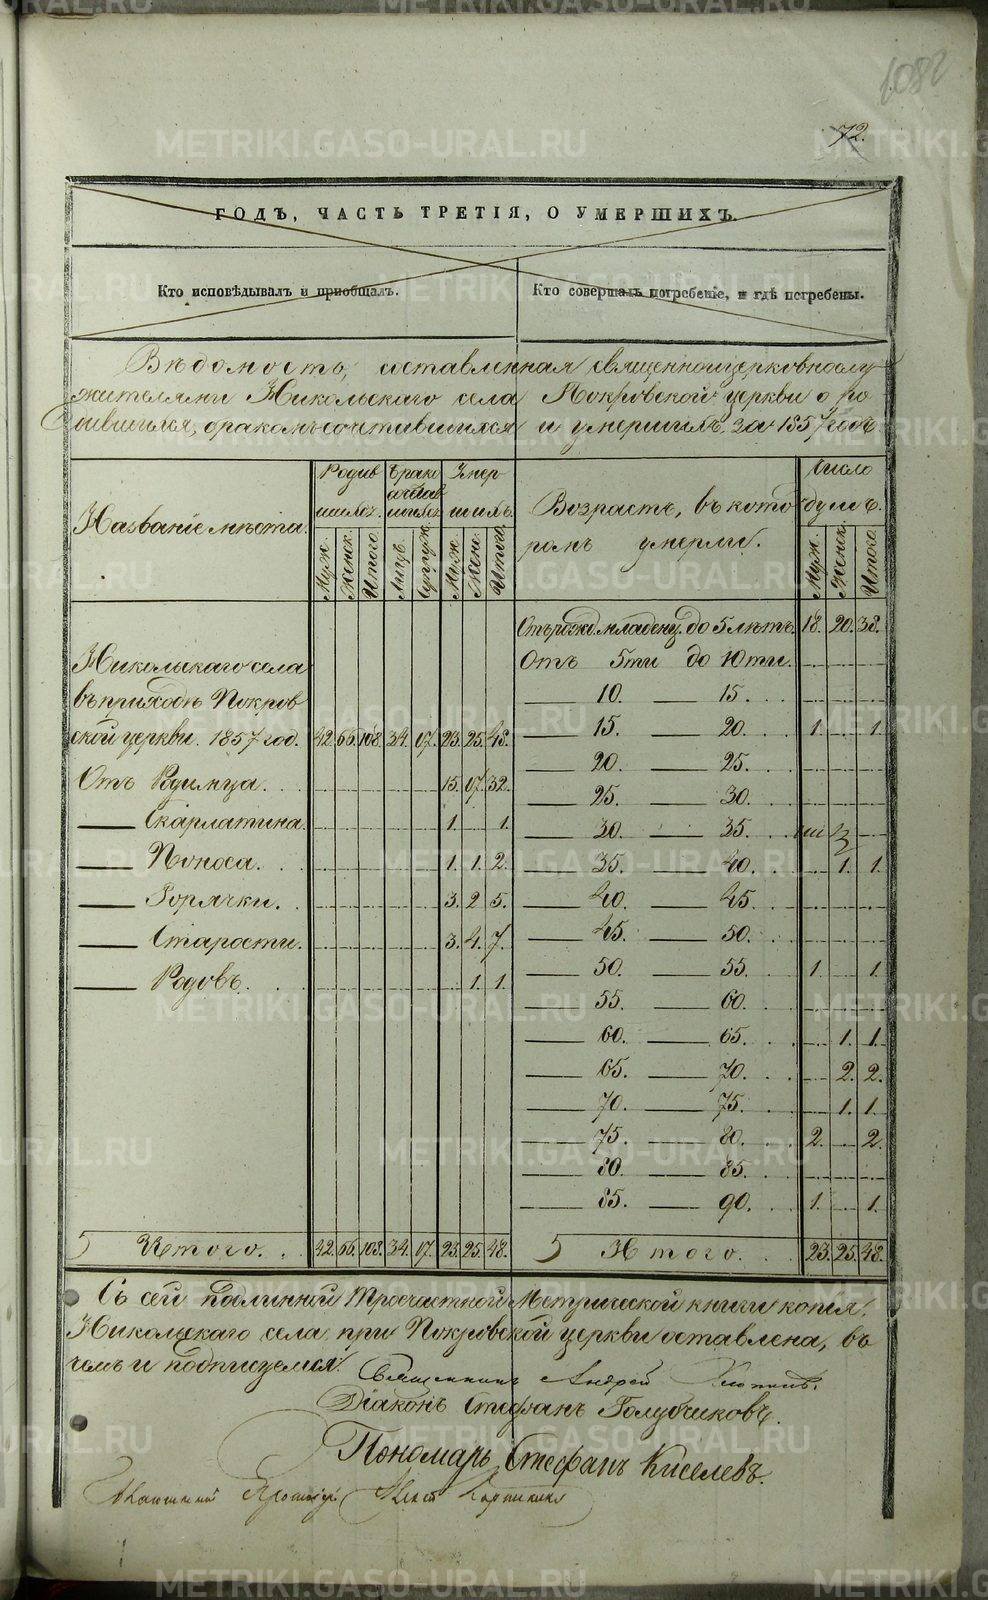 1082
72.
ГОДЪ, ЧАСТЬ ТРЕТІЯ, О УМЕРШИХЪ.
Кто исповѣдывалъ и пріобщалъ.
Кто совершалъ погребеніе, и гдѣ погребены.
Вѣдомость, составленная священноцерковнослу
жителями Никольскаго села Покровской церкви о ро
дившихся, бракомъ сочетавшихся и умершихъ за 1857 годъ
Названіе мѣста.
Родив
шихся.
Умер
шихъ.
Муж. Женск. Итого.
Муж. Жен. Итого.
Возрастъ, въ кото
ромъ умерли.
Число
душъ.
Муж. Женск. Итого.
Никольскаго села
въ приходѣ Покров
ской церкви. 1857 год. 42. 66. 108. 34. 17. 23. 25. 48.
Отъ Родимца. 15. 17. 32.
Скарлатина. 1. 1.
Поноса. 1. 1. 2.
Горячки. 3. 2. 5.
Старости. 3. 4. 7.
Родовъ. 1. 1.
Итого. 42. 66. 108. 34. 17. 23. 25. 48.
младенц. до 5 лѣтъ. 18. 20. 38.
Отъ 5ти до 10ти.
10. 15.
15. 20. 1. 1.
20. 25.
25. 30.
30. 35.
35. 40. 1. 1.
40. 45.
45. 50.
50. 55. 1. 1.
55. 60.
60. 65. 1. 1.
65. 70. 2. 2.
70. 75. 1. 1.
75. 80. 2. 2.
80. 85.
85. 90. 1. 1.
Итого. 23. 25. 48.
Съ сей подлинной Троечастной Метрической книги копія
Никольскаго села при Покровской церкви оставлена, въ
чемъ и подписуемся.
Священникъ Андрей
Діаконъ Стефанъ Голубчиковъ.
Пономарь Стефанъ Киселевъ.
METRIKI.GASO-URAL.RU